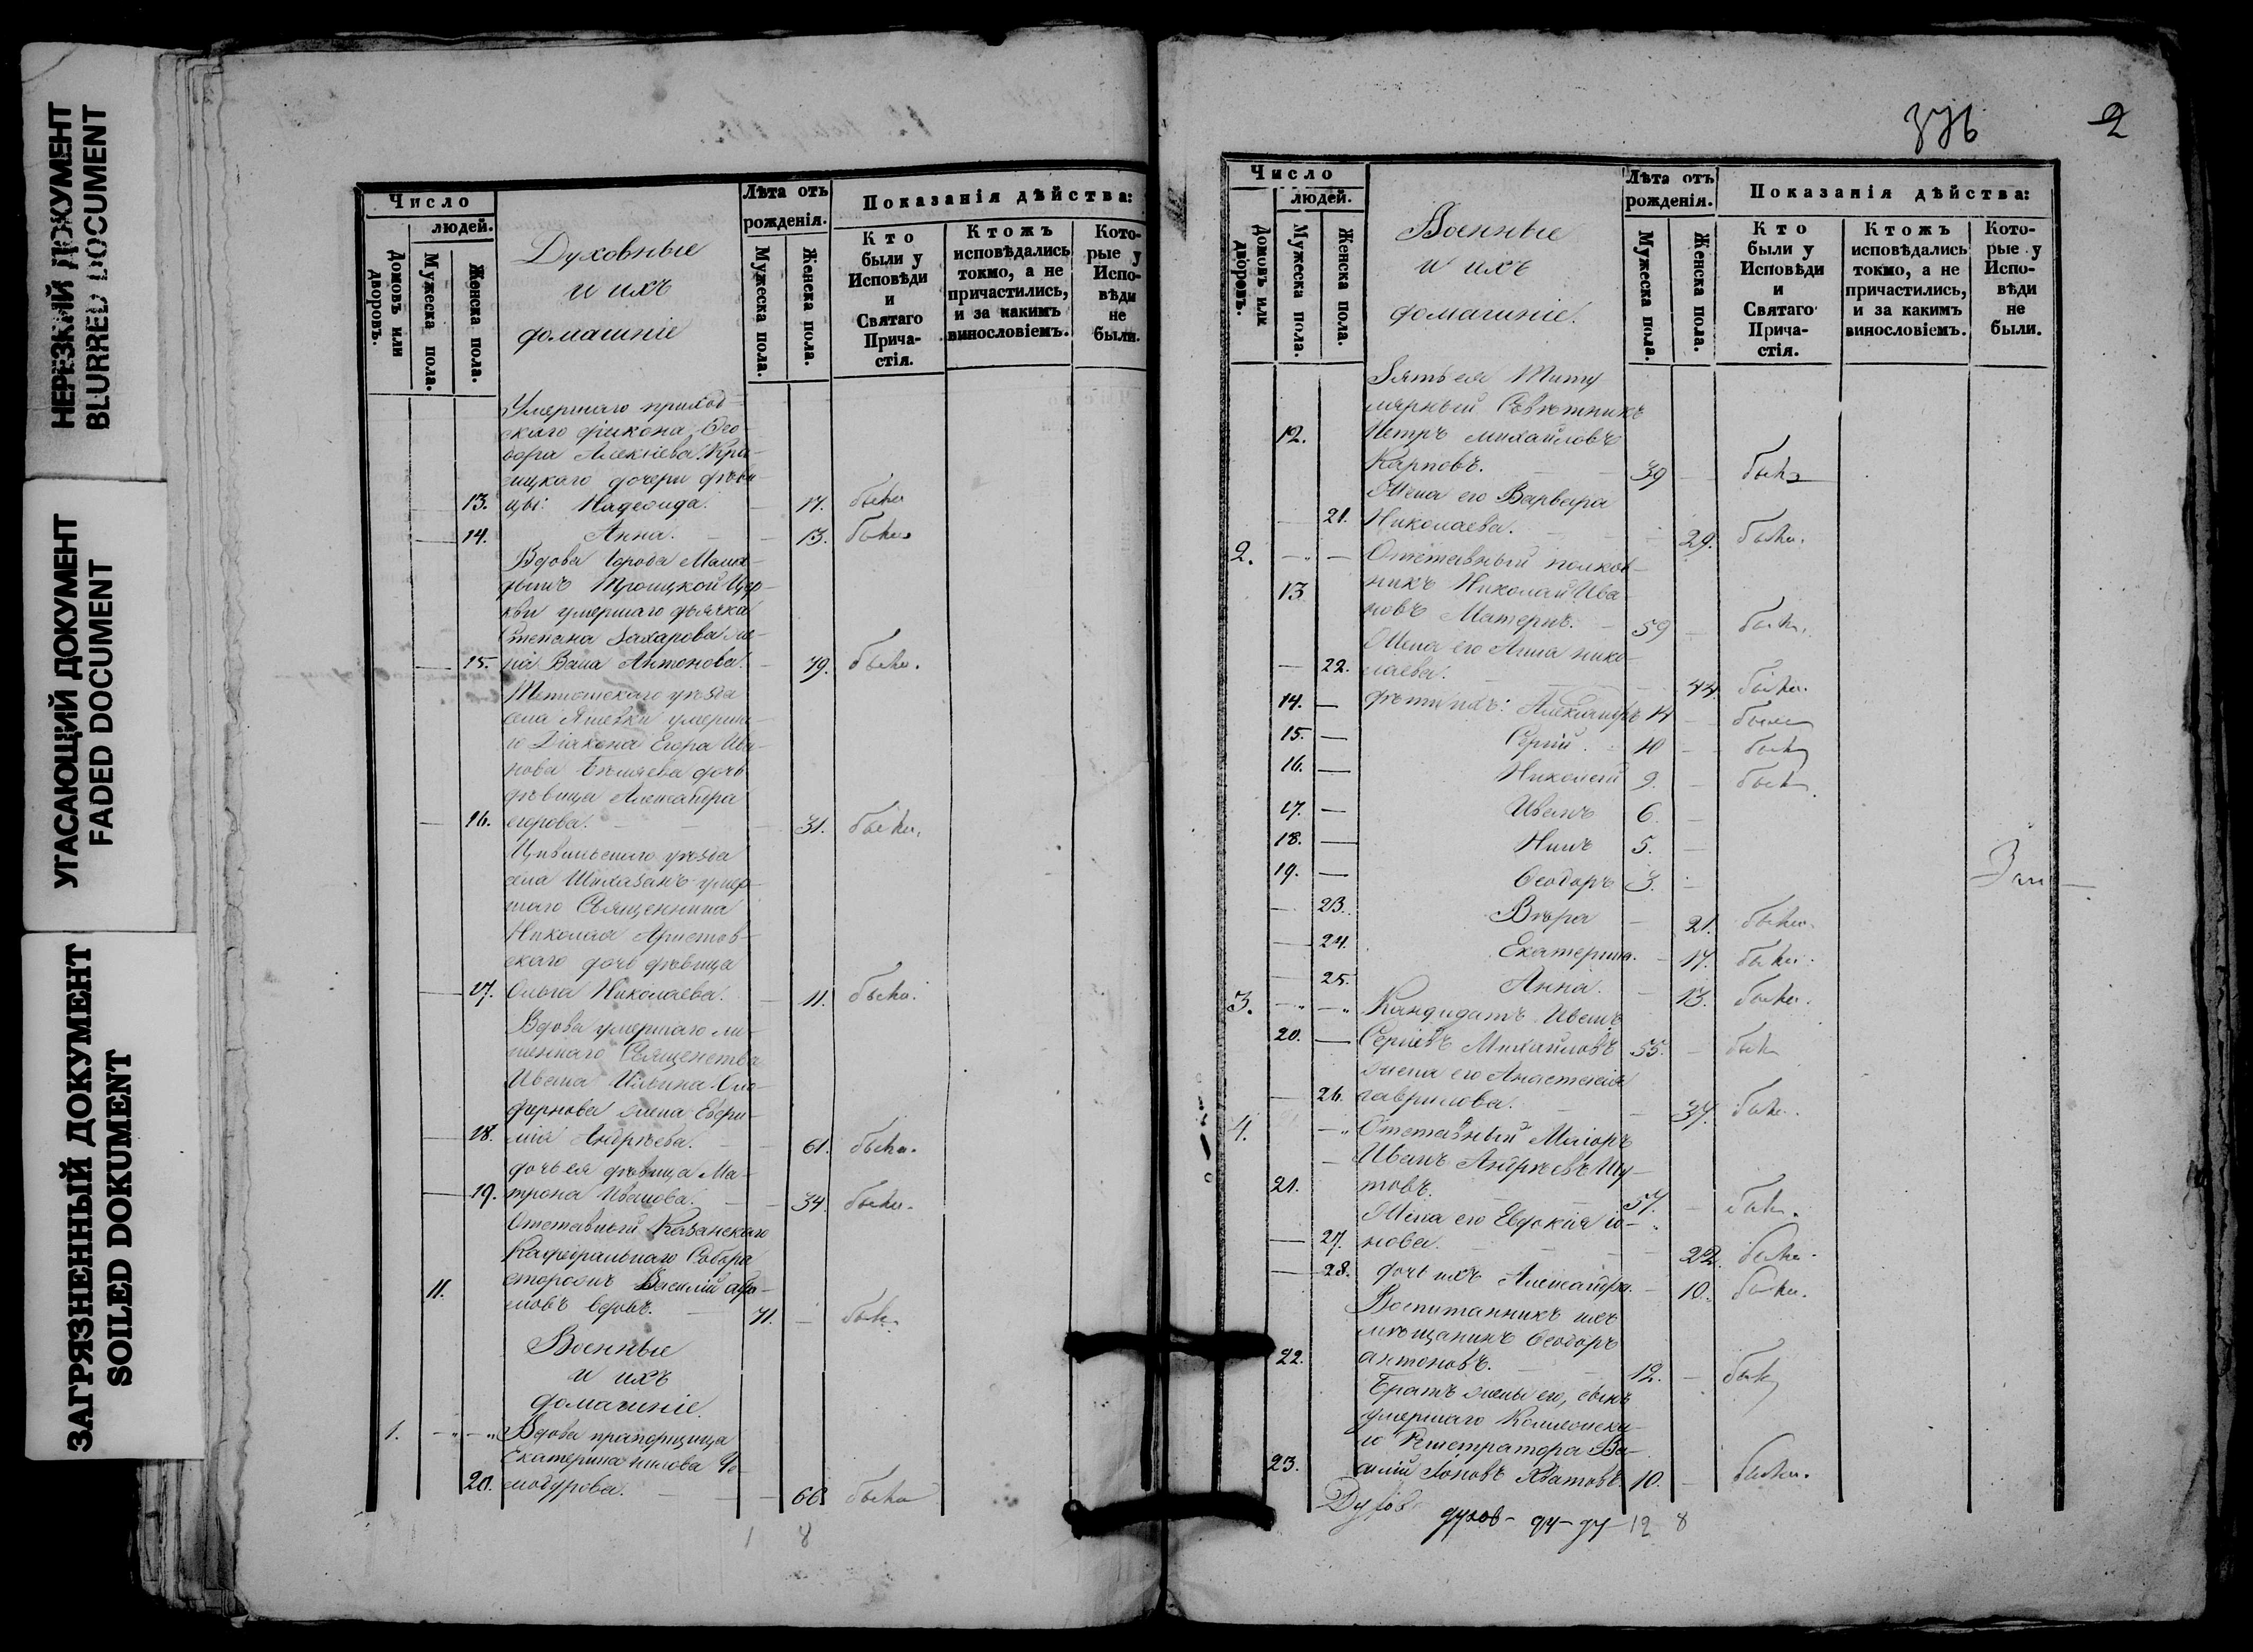 НЕРЕЗКИЙ ДОКУМЕНТ
BLURRED DOCUMENT
УГАСАЮЩИЙ ДОКУМЕНТ
FADED DOCUMENT
ЗАГРЯЗНЕННЫЙ ДОКУМЕНТ
SOILED DOKUMENT
Число
людей.
Домовъ или дворовъ.
Мужеска пола.
Женска пола.
Духовные
и ихъ
домашніе
Лѣта отъ рожденія.
Мужеска пола.
Женска пола.
Показанія дѣйства:
Кто были у Исповѣди и Святаго Причастія.
Ктожъ исповѣдались токмо, а не причастились, и за какимъ винословіемъ.
Которые у Исповѣди не были.
Умершаго приход-
скаго діакона Ѳео-
дора Алексіева
дочери дѣви-
13. цы: Надежда. 17. была
14. Анна. 13. была
Вдова города Мама-
дышъ Троицкой Цер-
кви умершаго дьячка
Степана Захарова же-
15. на Антонова. 79. была.
Тетюшскаго уѣзда
села умерша-
го Діакона Егора Ива-
нова Бѣляева дочь
дѣвица Александра
16. егорова. 31. была.
Цивильскаго уѣзда
села Шихазанъ умер-
шаго Священника
Николая
скаго дочь дѣвица
17. Ольга Николаева. 11. была.
Вдова умершаго ли-
шеннаго Священства
Ивана Ильина
жена
18. Андрѣева. 61. была.
дочь ея дѣвица Ма-
19. трона Иванова. 34. была.
Отставный Казанскаго
Кафедральнаго Собора
11. сторожъ Василій
71. —
Военные
и ихъ
домашніе.
1. Вдова прапорщица
Екатерина
20. 66. была
1 8
376
2
Число
людей.
Домовъ или дворовъ.
Мужеска пола.
Женска пола.
Военные
и ихъ
домашніе.
Лѣта отъ рожденія.
Мужеска пола.
Женска пола.
Показанія дѣйства:
Кто были у Исповѣди и Святаго Причастія.
Ктожъ исповѣдались токмо, а не причастились, и за какимъ винословіемъ.
Которые у Исповѣди не были.
Зять ея Титу
лярный Совѣтникъ
12. Петръ Михайловъ
Карповъ. 39 — былъ
Жена его Варвара
21. Николаева. 29. была.
2. Отставный полков-
13 никъ Николай Ива
новъ Матернъ. 59 — былъ.
Жена его Анна нико-
22. лаева. 44. была.
14. дѣти ихъ: Александръ 14 — былъ
15. Сергій. 10 — былъ
16. Николай 9. — былъ
17. Иванъ 6. —
18. Нилъ 5. —
19. Ѳеодоръ 3. —
23. Вѣра — 21. была.
24. Екатерина. — 17. была.
25. Анна. — 13. была.
3. Кандидатъ Иванъ
20. Сергіевъ Михайловъ 55. — былъ
жена его Анастасія
26. гаврилова. 37. была.
4. Отставный Маіоръ
Иванъ Андрѣевъ Шу-
21. товъ. 57. — былъ.
Жена его Евдокія іо-
27. нова. 22. была.
28. дочь ихъ Александра. — 10. была.
Воспитанникъ ихъ
мѣщанинъ Ѳеодоръ
22. антоновъ. 12. — былъ
Братъ жены его, сынъ
умершаго Коллежска-
го Регистратора Ва-
23. силій Іоновъ 10. —
духов-
12 8